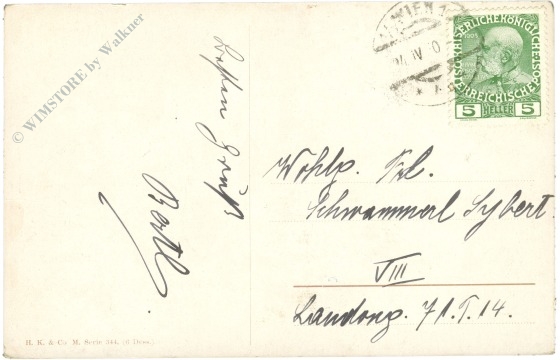 © WIMSTORE by Walkner
Besten Gruß
Bertl
WIEN 1
IV
KAISERLICHE KÖNIGLICHE
ÖSTERREICHISCHE POST
1908
5 HELLER 5
Wohlg. Frl.
Schwammerl Sybert
VIII
Landong. 71. T. 14.
B. K. & Co M. Serie 344. (6 Dess.)